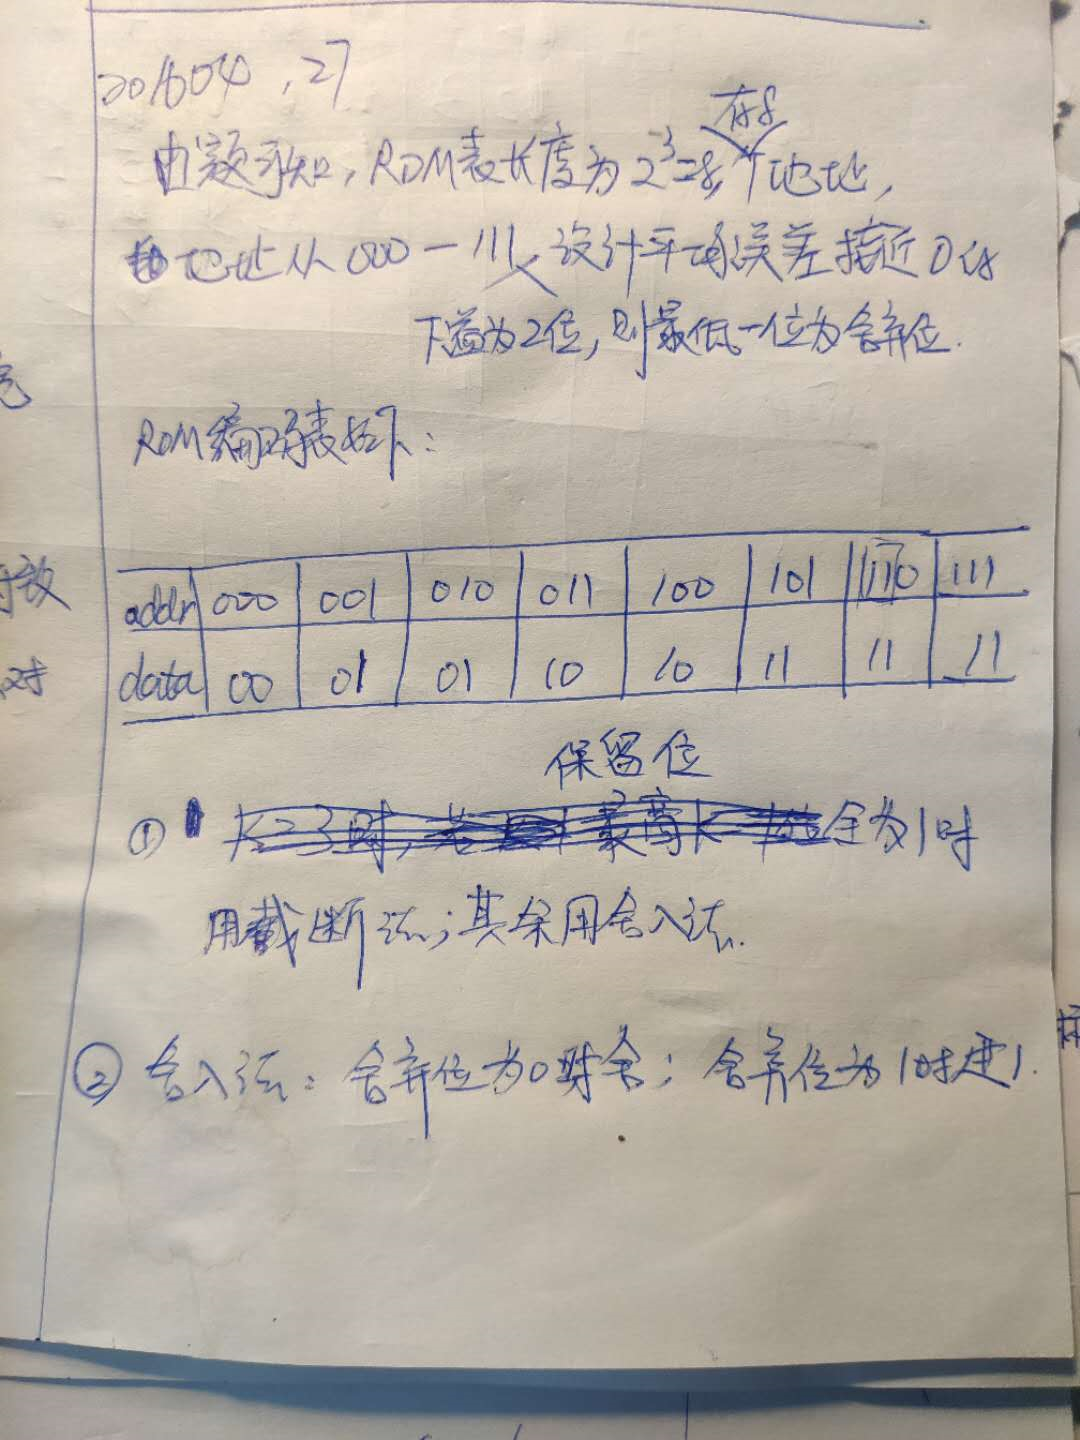 201604，27
有8
由题可知，ROM表长度为2³=8，个地址，
地址从000—111，设计平均误差接近0的
下溢为2位，则最低一位为舍弃位.
ROM编码表如下：
addr 000 001 010 011 100 101 110 111
data 00 01 01 10 10 11 11 11
保留位
① 全为1时
用截断法；其余用舍入法.
② 舍入法：舍弃位为0时舍；舍弃位为1时进1.